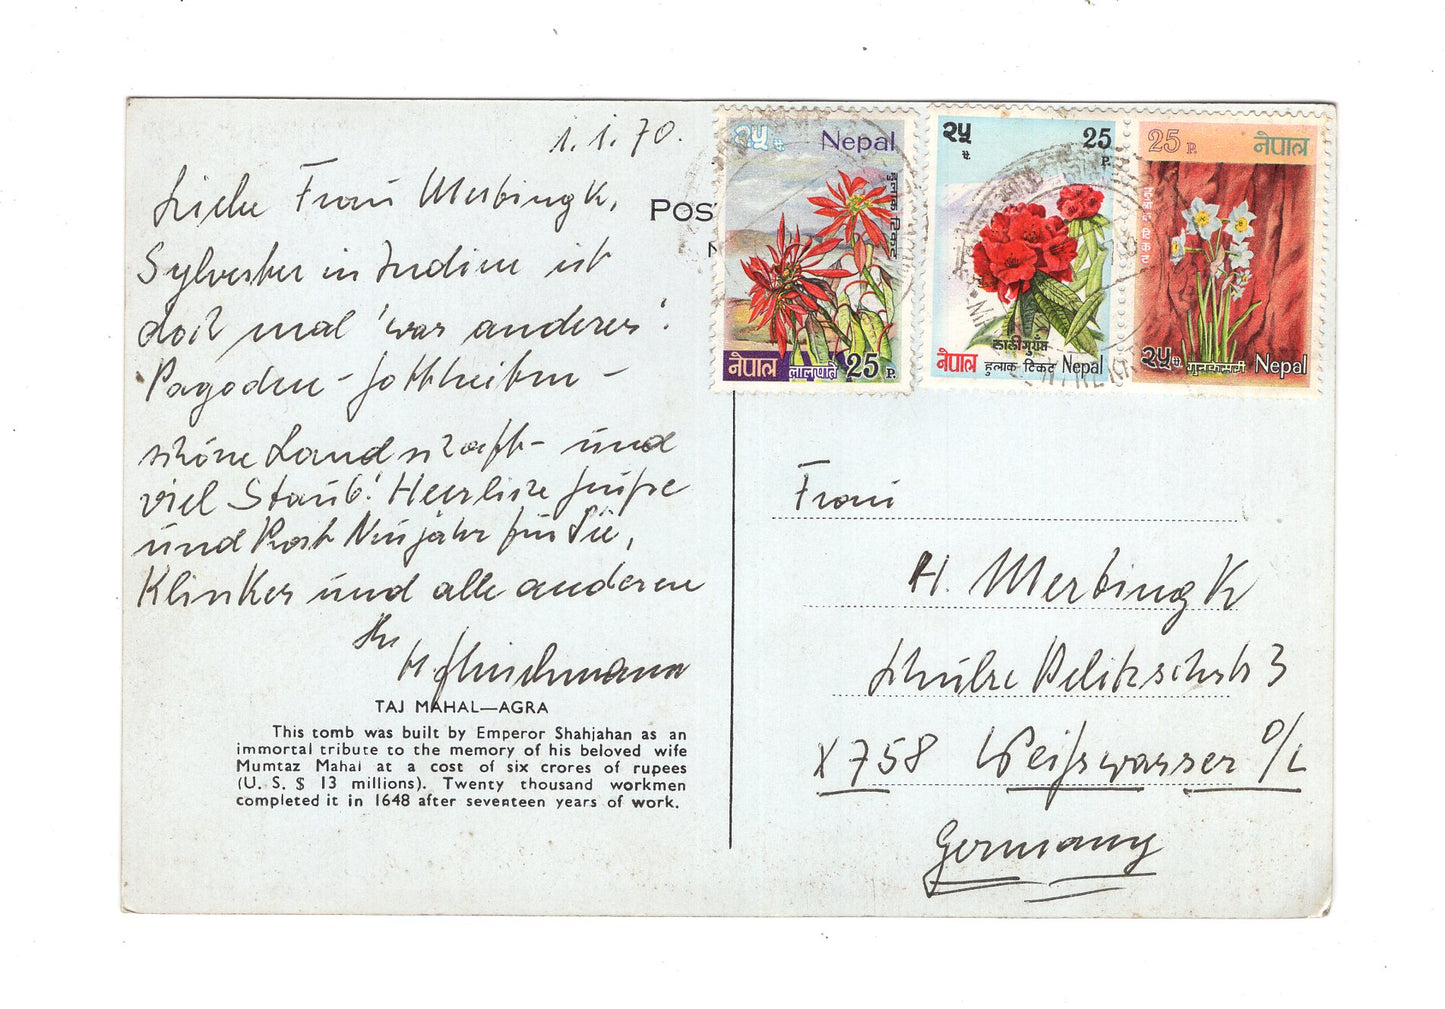 1.1.70.
Liebe Frau Merbingk,
Sylvester in Indien ist
doch mal 'was anderes'.
Pagoden - Gottheiten -
schöne Landschaft - und
viel Staub! Herzliche Grüße
und Prost Neujahr für Sie,
Klinkes und alle anderen
Ihr
H.
TAJ MAHAL—AGRA
This tomb was built by Emperor Shahjahan as an
immortal tribute to the memory of his beloved wife
Mumtaz Mahal at a cost of six crores of rupees
(U. S. $ 13 millions). Twenty thousand workmen
completed it in 1648 after seventeen years of work.
POS
२५ पै. Nepal
हुलाक टिकट
नेपाल लालुपाते 25 P.
२५ पै. 25 P.
लालीगुराँस
नेपाल हुलाक टिकट Nepal
25 P. नेपाल
हुलाक टिकट
२५ पै. गुनकेसरी Nepal
Frau
H. Merbingk
Schulze Delitzschstr 3
X 758 Weißwasser O/L
Germany